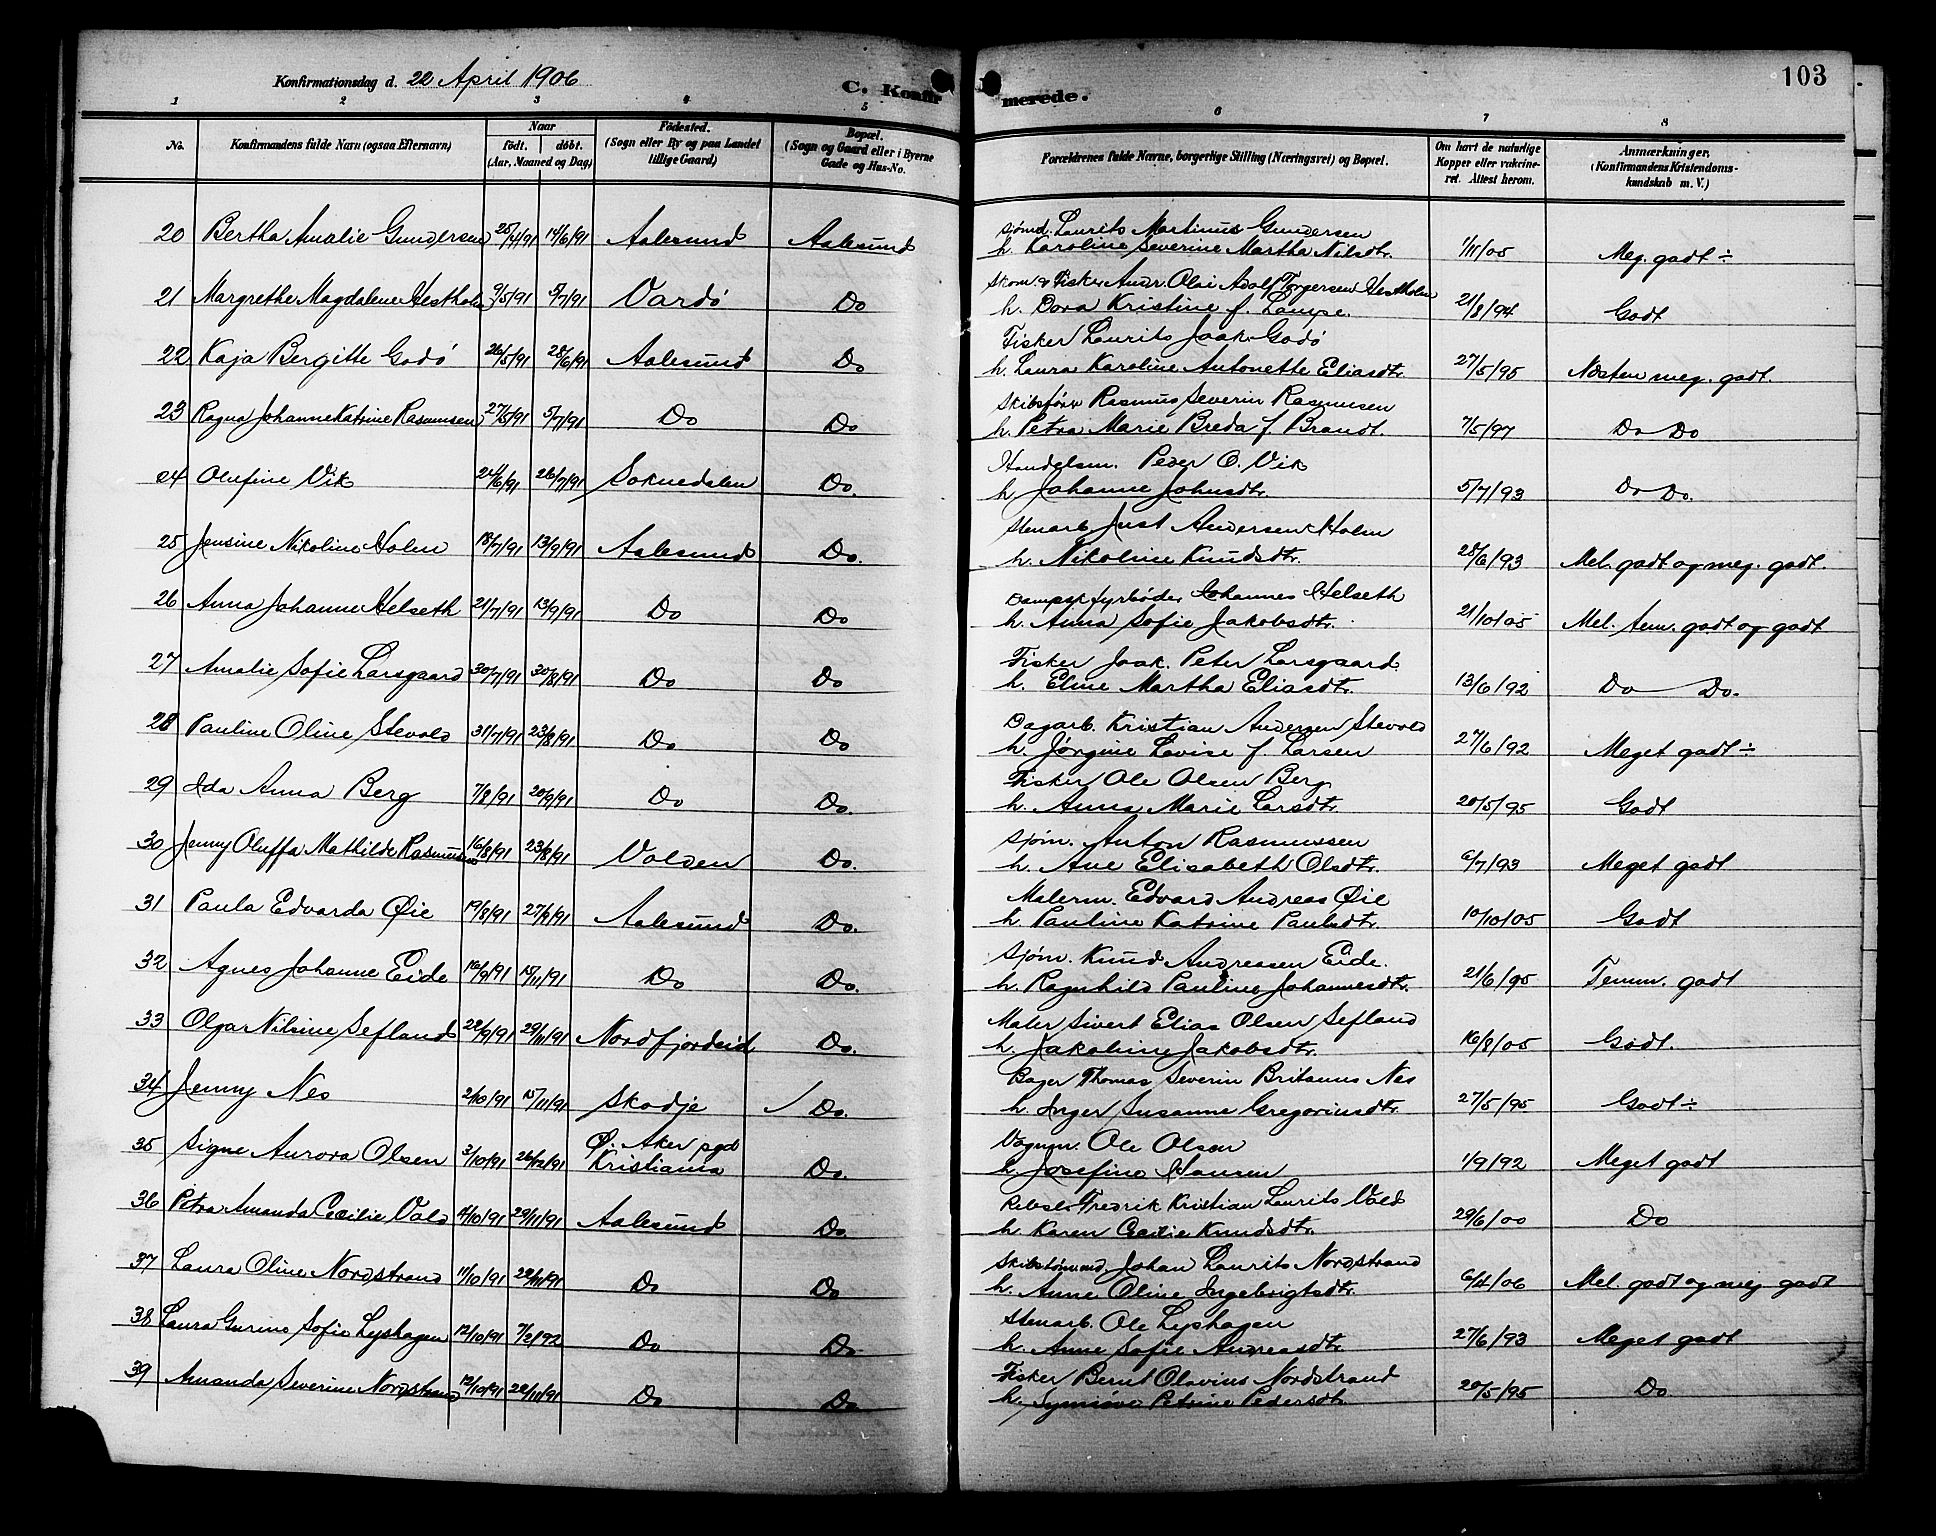 Konfirmationsdag d. 22 April 1906
C. Konfirmerede.
103
1 2 3 4 5 6 7 8
No.
Konfirmandens fulde Navn (ogsaa Efternavn)
Naar
födt. döbt.
(Aar, Maaned og Dag)
Födested.
(Sogn eller By og paa Landet
tillige Gaard)
Bopæl.
(Sogn og Gaard eller i Byerne
Gade og Hus-No.
Forældrenes fulde Navne, borgerlige Stilling (Næringsvei) og Bopæl.
Om havt de naturlige
Kopper eller vakcine-
ret. Attest herom.
Anmærkninger.
(Konfirmandens Kristendoms-
kundskab m. V.)
20 Bertha Amalie Gundersen 25/4/91 14/6/91 Aalesund Aalesund
sjømd. Laurits Martinus Gundersen
h. Karoline Severine Martha Nilsdtr. 1/11/05 Meg. godt ÷
21 Margrethe Magdalene Hestholm 9/5/91 5/7/91 Vardö Do
Skom. & Fisker Andr. Olai Adolf Torgersen Hestholm
h. Dora Kristine f. Lampe. 21/8/94 Godt
22 Kaja Bergitte Godö 26/5/91 28/6/91 Aalesund Do
Fisker Laurits Jaak. Godö
h. Laura Karoline Antonette Eliasdtr. 27/5/95 Næsten meg. godt.
23 Ragna Johanne Katrine Rasmussen 27/5/91 5/7/91 Do Do
Skibsfører Rasmus Severin Rasmusen
h. Petra Marie Breda f. Brandt. 7/5/97 Do Do
24 Olufine Vik 24/6/91 26/7/91 Soknedalen Do.
Handelsm. Peder O. Vik
h. Johanne Johnsdtr. 5/7/93 Do Do.
25 Jensine Nikoline Holm 18/7/91 13/9/91 Aalesund Do.
Stenarb. Just Andersen Holm
h. Nikoline Knudsdtr. 28/6/93 Mel. godt og meg. godt.
26 Anna Johanne Helseth 21/7/91 13/9/91 Do Do
Dampsk. fyrböder Johannes Helseth
h. Anna Sofie Jakobsdtr. 21/10/05 Mel. tem. godt og godt
27 Amalie Sofie Larsgaard 30/7/91 30/8/91 Do Do
Fisker Jaak. Peter Larsgaard.
h. Eline Martha Eliasdtr. 13/6/92 Do Do.
28 Pauline Oline Stevold 31/7/91 23/8/91 Do Do
Dagarb. Kristian Andersen Stevold
h. Jörgine Lovise f. Larsen 27/6/92 Meget godt ÷
29 Ida Anna Berg 7/8/91 20/9/91 Do Do.
Fisker Ole Olsen Berg
h. Anna Marie Larsdtr. 20/5/95 Godt
30 Jenny Oluffa Mathilde Rasmussen 16/8/91 23/8/91 Volden Do.
Sjøm. Anton Rasmussen
h. Ane Elisabeth Olsdtr. 6/7/93 Meget godt
31 Paula Edvarda Øie 19/8/91 27/9/91 Aalesund Do.
Malerm. Edvard Andreas Øie
h. Pauline Katrine Paulsdtr. 10/10/05 Godt
32 Agnes Johanne Eide 16/9/91 15/11/91 Do Do.
Sjøm. Knud Andreasen Eide.
h. Ragnhild Pauline Johannesdtr. 21/6/95 Temm. godt
33 Olga Nilsine Sefland 22/9/91 29/11/91 Nordfjordeid Do.
Maler Sivert Elias Olsen Sefland
h. Jakobine Jakobsdtr. 16/8/05 Godt.
34 Jenny Nes 2/10/91 15/11/91 Skodje / Do.
Bager Thomas Severin Britanus Nes
h. Inger Susanne Gregoriusdtr. 27/5/95 Godt ÷
35 Signe Aurora Olsen 3/10/91 26/12/91 Ø. Aker pgd
Kristiania Do.
Vognm. Ole Olsen
h. Josefine Hansen 1/9/92 Meget godt
36 Petra Amanda Cecilie Vold 4/10/91 29/11/91 Aalesund Do
Rebsl. Fredrik Kristian Laurits Vold
h. Karen Cecilie Knudsdtr. 29/6/00 Do
37 Laura Oline Nordstrand 11/10/91 22/11/91 Do Do
Skibstømmd. Johan Laurits Nordstrand
h. Anne Oline Ingebrigtsdtr. 6/4/06 Mel. godt og meg. godt
38 Laura Gurine Sofie Lyshagen 12/10/91 7/2/92 Do Do
Stenarb. Ole Lyshagen
h. Anne Sofie Andreasdtr. 27/6/93 Meget godt
39 Amanda Severine Nordstrand 12/10/91 22/11/91 Do Do
Fisker Bernt Olavius Nordstrand
h. Synnöve Petrine Pedersdtr. 20/5/95 Do